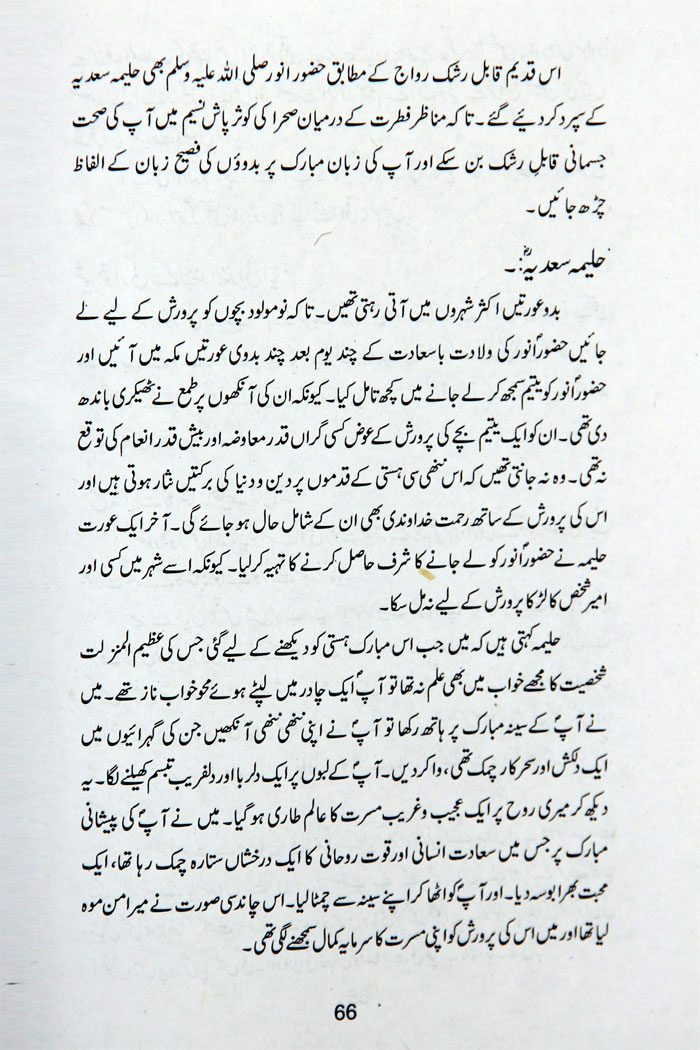 اس قدیم قابل رشک رواج کے مطابق حضور انور صلی اللہ علیہ وسلم بھی حلیمہ سعدیہ
کے سپرد کر دیئے گئے۔ تاکہ مناظر فطرت کے درمیان صحرا کی کوثر پاش نسیم میں آپ کی صحت
جسمانی قابلِ رشک بن سکے اور آپ کی زبان مبارک پر بدوؤں کی فصیح زبان کے الفاظ
چڑھ جائیں۔
حلیمہ سعدیہؓ:۔
بدو عورتیں اکثر شہروں میں آتی رہتی تھیں۔ تاکہ نومولود بچوں کو پرورش کے لیے لے
جائیں حضورؐ انور کی ولادت باسعادت کے چند یوم بعد چند بدوی عورتیں مکہ میں آئیں اور
حضورؐ انور کو یتیم سمجھ کر لے جانے میں کچھ تامل کیا۔ کیونکہ ان کی آنکھوں پر طمع نے ٹھیکری باندھ
دی تھی۔ ان کو ایک یتیم بچے کی پرورش کے عوض کسی گراں قدر معاوضہ اور بیش قدر انعام کی توقع
نہ تھی۔ وہ نہ جانتی تھیں کہ اس ننھی سی ہستی کے قدموں پر دین و دنیا کی برکتیں نثار ہوتی ہیں اور
اس کی پرورش کے ساتھ رحمت خداوندی بھی ان کے شامل حال ہو جائے گی۔ آخر ایک عورت
حلیمہ نے حضورؐ انور کو لے جانے کا شرف حاصل کرنے کا تہیہ کر لیا۔ کیونکہ اسے شہر میں کسی اور
امیر شخص کا لڑکا پرورش کے لیے نہ مل سکا۔
حلیمہ کہتی ہیں کہ میں جب اس مبارک ہستی کو دیکھنے کے لیے گئی جس کی عظیم المنزلت
شخصیت کا مجھے خواب میں بھی علم نہ تھا تو آپؐ ایک چادر میں لپٹے ہوئے محو خواب ناز تھے۔ میں
نے آپؐ کے سینہ مبارک پر ہاتھ رکھا تو آپؐ نے اپنی ننھی ننھی آنکھیں جن کی گہرائیوں میں
ایک دلکش اور سحر کار چمک تھی، وا کر دیں۔ آپؐ کے لبوں پر ایک دلربا اور دلفریب تبسم کھیلنے لگا۔ یہ
دیکھ کر میری روح پر ایک عجیب و غریب مسرت کا عالم طاری ہو گیا۔ میں نے آپؐ کی پیشانی
مبارک پر جس میں سعادت انسانی اور قوت روحانی کا ایک درخشاں ستارہ چمک رہا تھا، ایک
محبت بھرا بوسہ دیا۔ اور آپؐ کو اٹھا کر اپنے سینہ سے چمٹا لیا۔ اس چاند سی صورت نے میرا من موہ
لیا تھا اور میں اس کی پرورش کو اپنی مسرت کا سرمایہ کمال سمجھنے لگی تھی۔
66